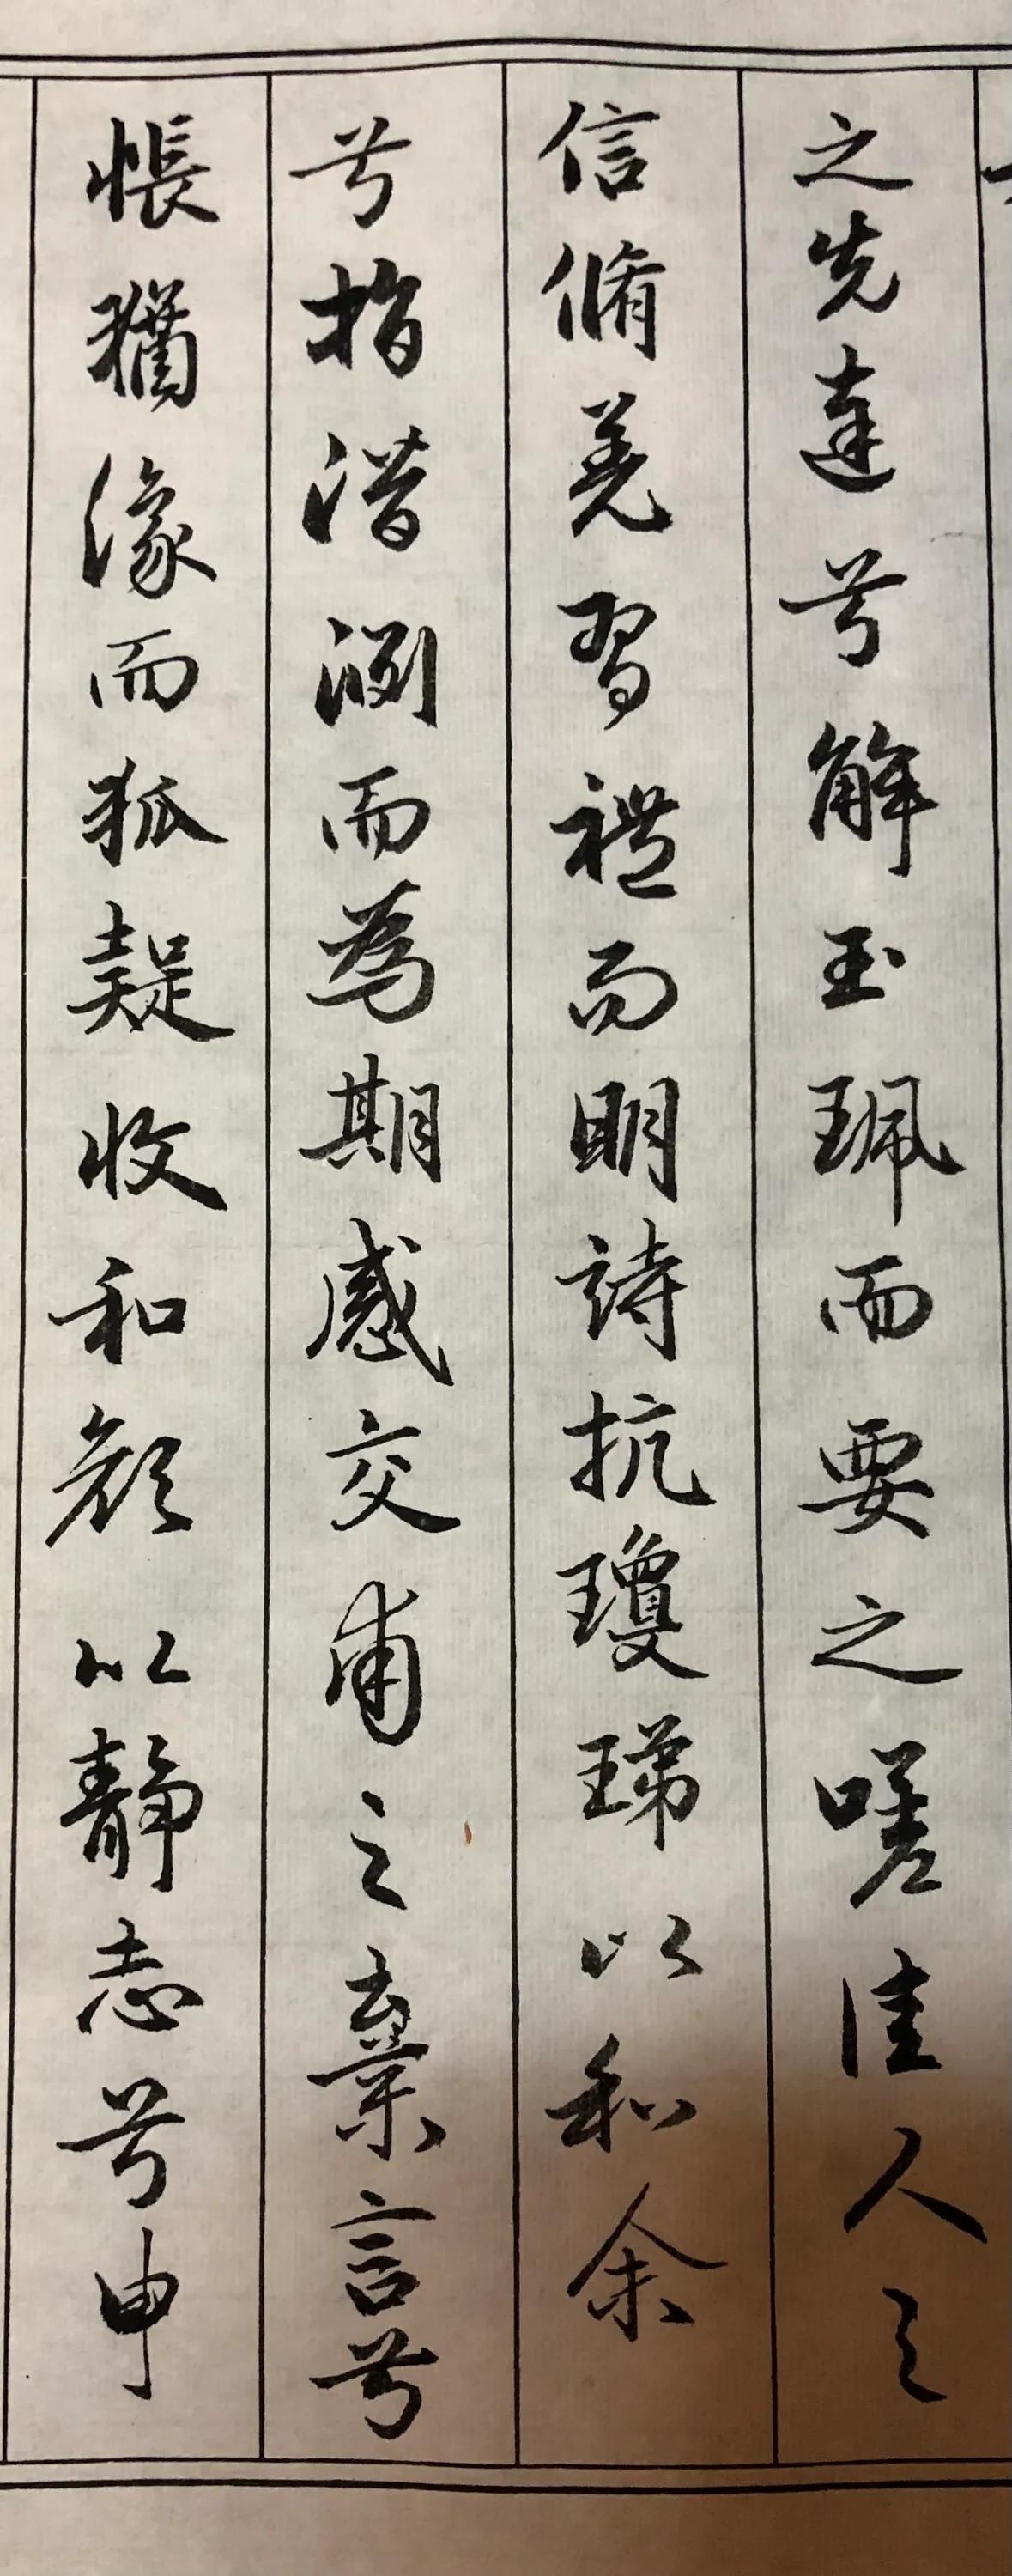 之先達兮解玉珮而要之嗟佳人之
信脩羌習禮而明詩抗瓊珶以和余
兮指潛淵而為期感交甫之棄言兮
悵猶豫而狐疑收和顏以靜志兮申